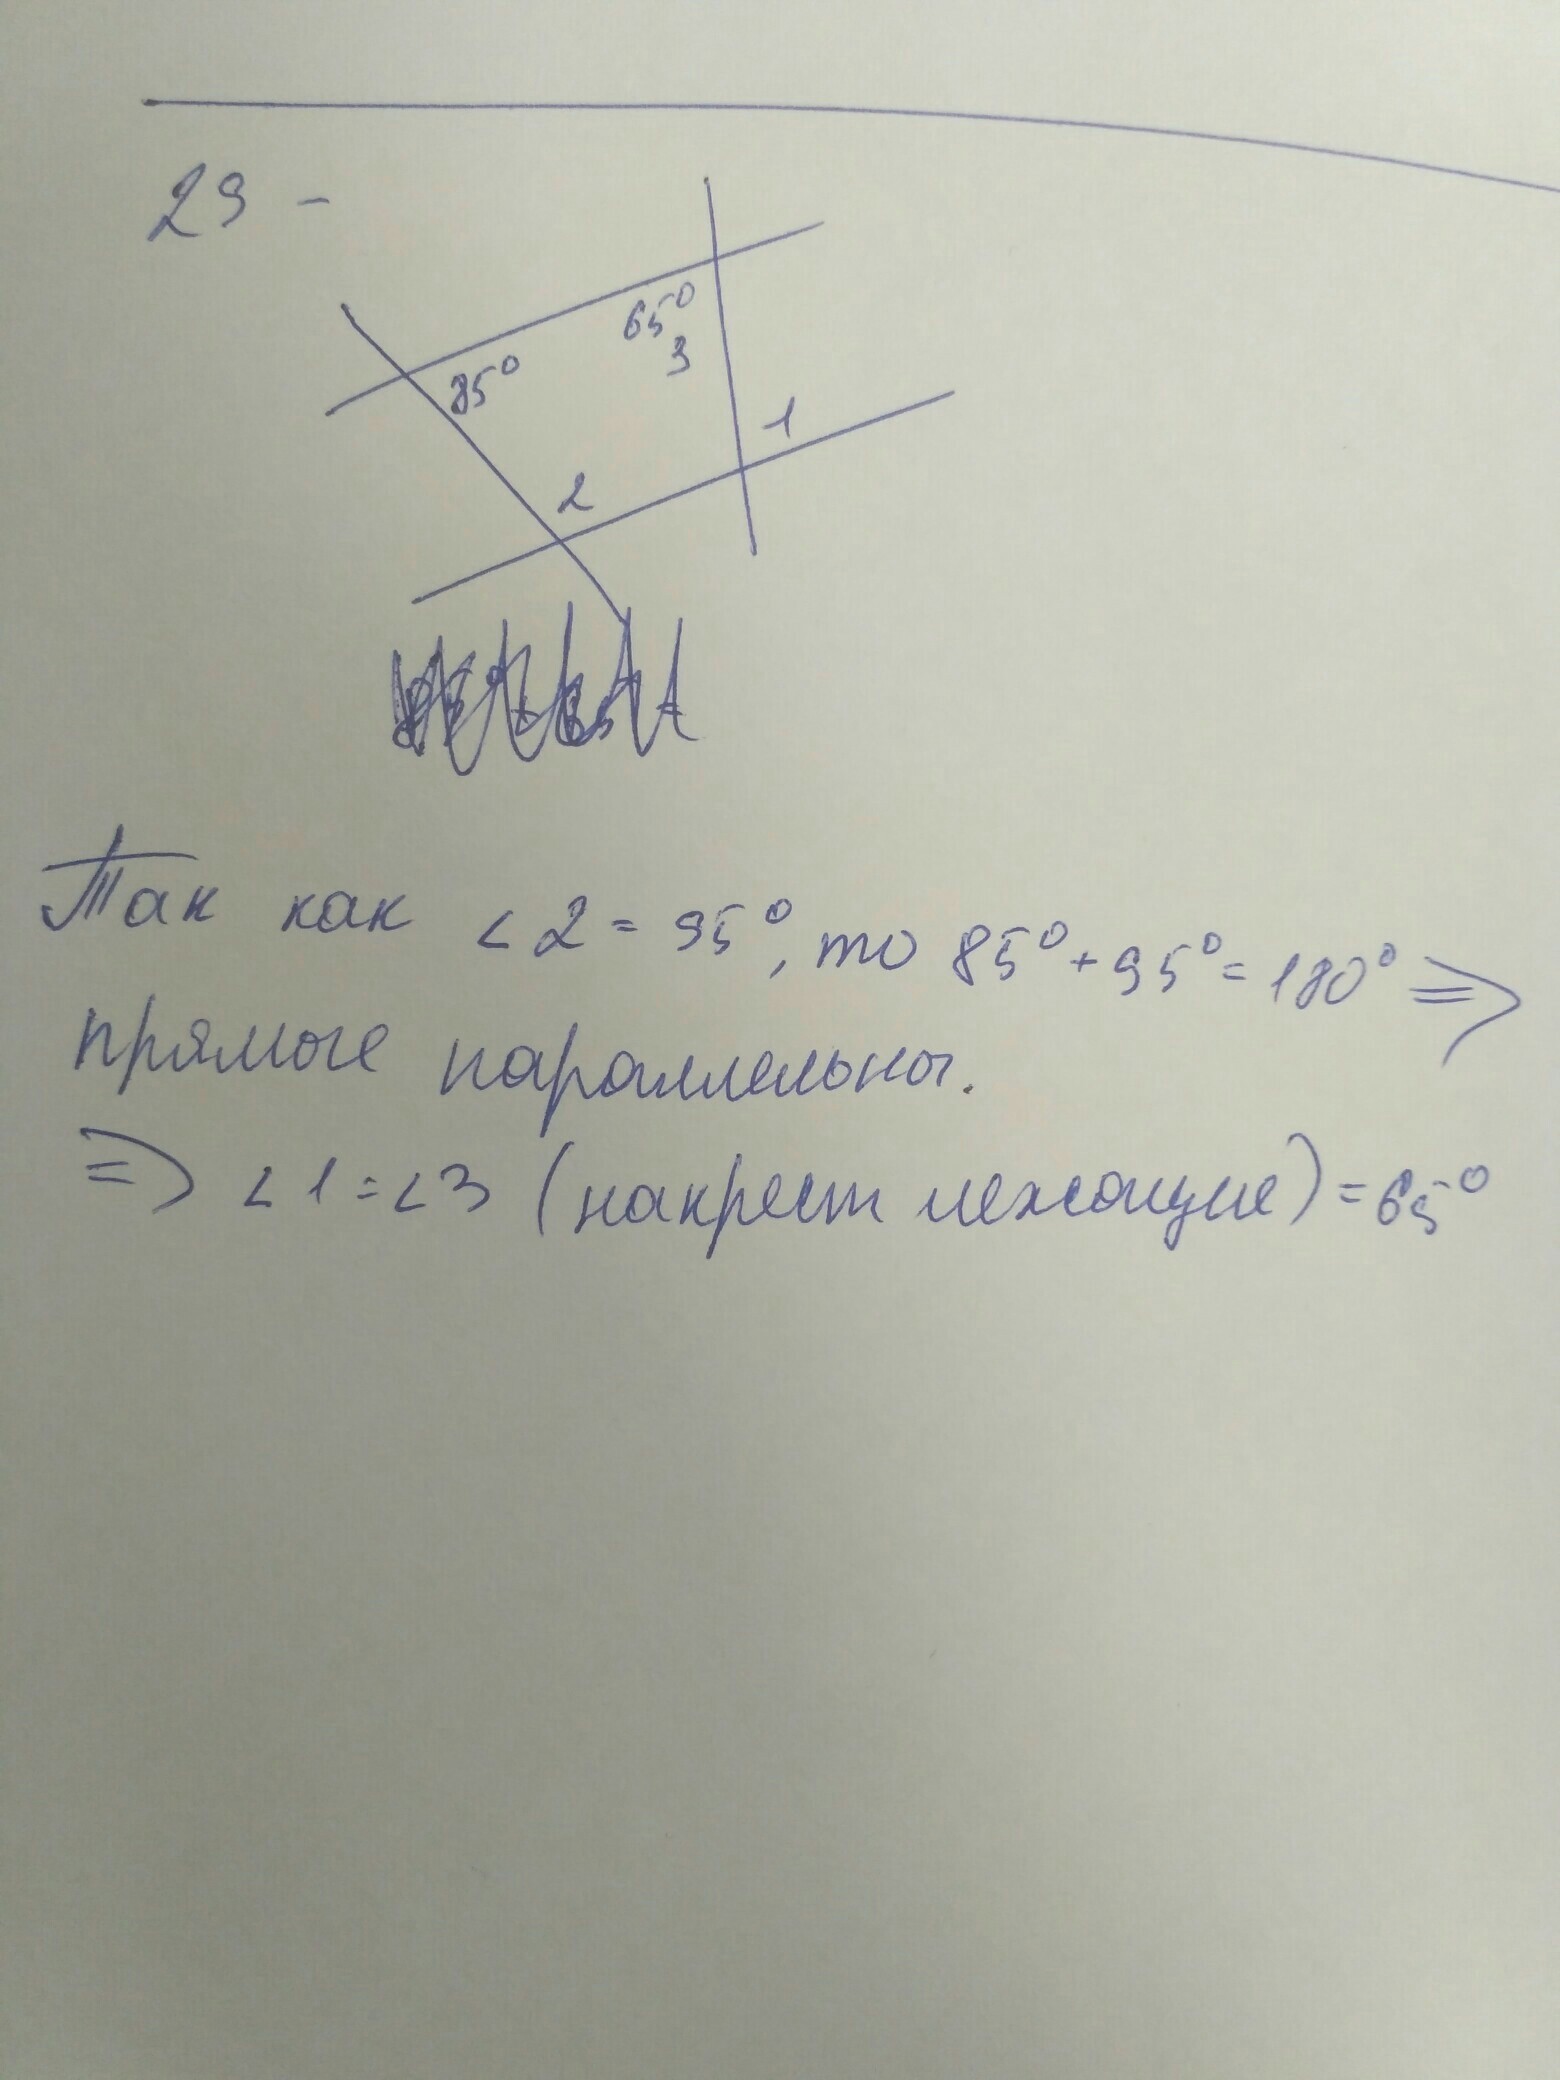 29 -
65°
3
85°
1
2
Так как <2 = 95°, то 85° + 95° = 180° =>
прямые параллельны.
=> <1 = <3 (накрест лежащие) = 65°